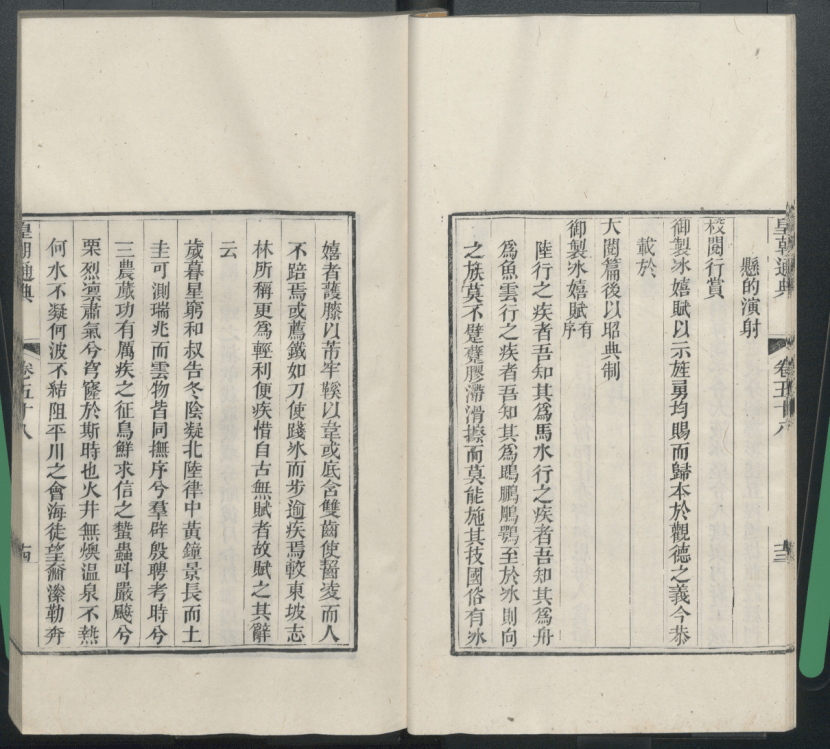 皇朝通典 卷五十八 十三
懸的演射
校閱行賞
御製冰嬉賦以示旌勇均賜而歸本於觀德之義今恭
載於
大閱篇後以昭典制
御製冰嬉賦有序
陸行之疾者吾知其為馬水行之疾者吾知其為舟
為魚雲行之疾者吾知其為鵾鵬鵰鶚至於冰則向
之族莫不躄躠膠滯滑擦而莫能施其技國俗有冰
嬉者護膝以芾牢鞵以韋或底含雙齒使齧凌而人
不踣焉或薦鐵如刀使踐冰而步逾疾焉較東坡志
林所稱更為輕利便疾惜自古無賦者故賦之其辭
云
歲暮星窮和叔告冬陰凝北陸律中黃鐘景長而土
圭可測瑞兆而雲物皆同撫序兮羣辟殷聘考時兮
三農蕆功有厲疾之征鳥鮮求信之蟄蟲吽嚴颷兮
栗烈澟肅氣兮穹窿於斯時也火井無燠温泉不熱
何水不凝何波不結阻平川之會海徒望奫潫勒奔
皇朝通典 卷五十八 十四